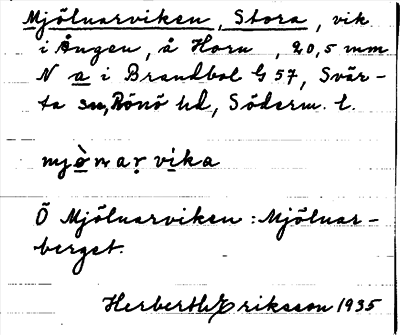 Mjölnarviken, Stora, vik
i Ången, å Horn, 20,5 mm
N a i Brandbol G 57, Svär-
ta sn, Rönö hd, Söderm. l.
mjò̤nar vika
Ö Mjölnarviken : Mjölnar-
berget.
Herberth Eriksson 1935